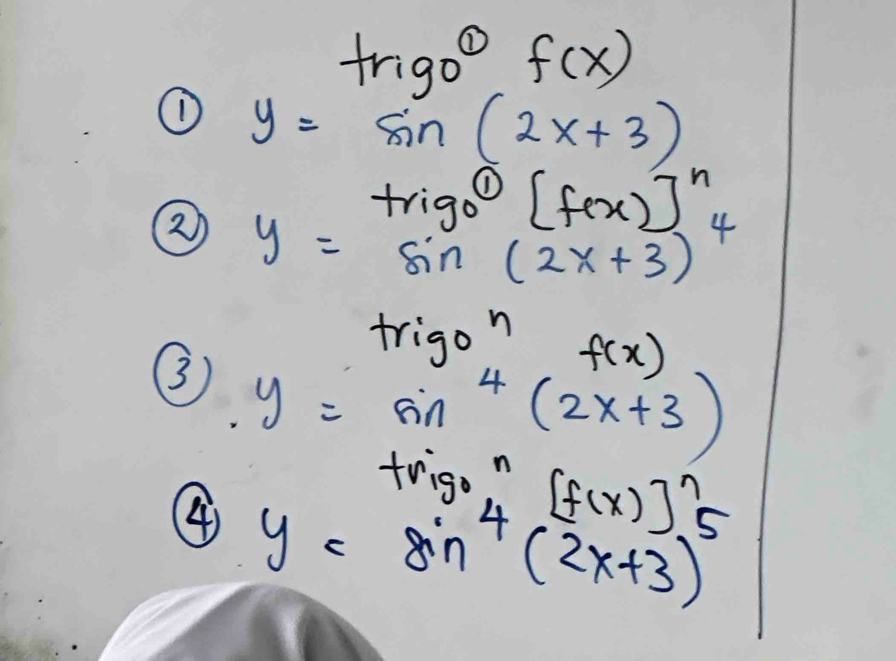 trigo^① f(x)
① y = sin (2x+3)
trigo^① [f(x)]^n
② y = sin (2x+3)^4
trigo^n f(x)
③ y = sin^4 (2x+3)
trigo^n [f(x)]^n
④ y = sin^4 (2x+3)^5